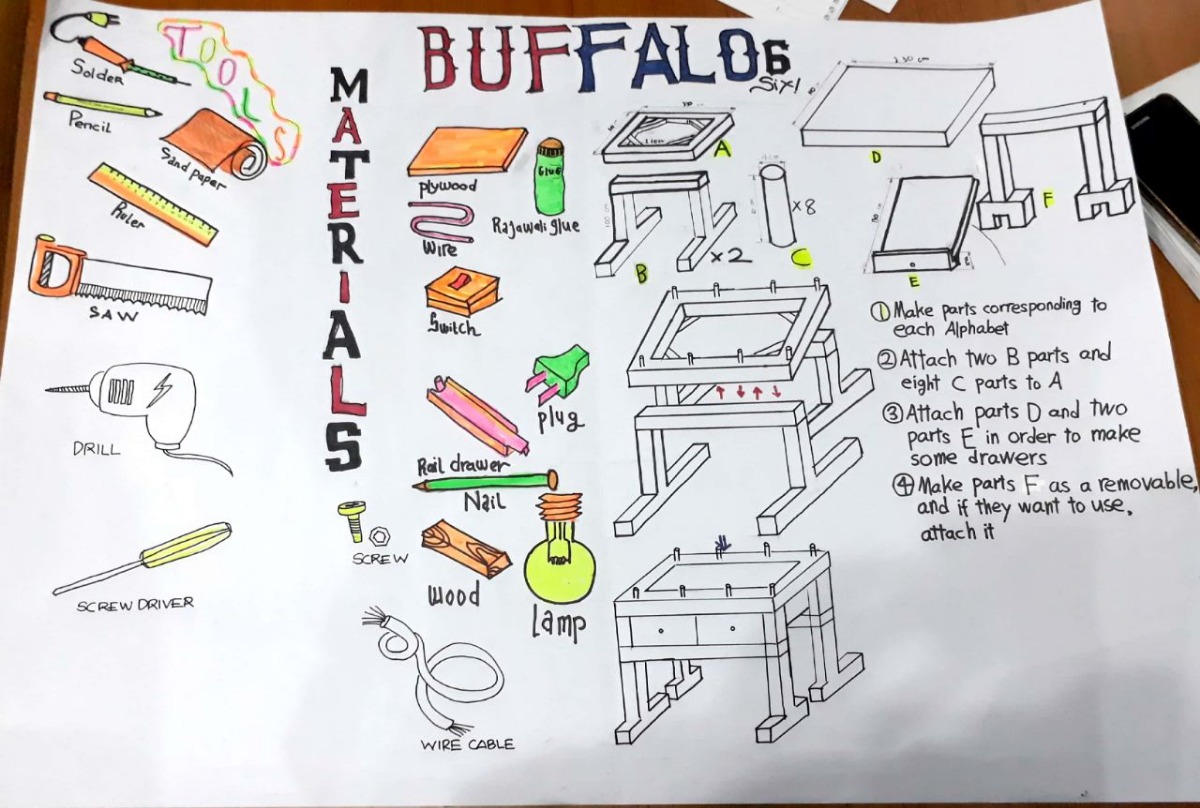 BUFFALO6
Six!
TOOLS
Solder
Pencil
Sand paper
Ruler
SAW
DRILL
SCREW DRIVER
MATERIALS
plywood
Glue
Rajawali glue
Wire
Switch
plug
Rail drawer
Nail
SCREW
wood
Lamp
WIRE CABLE
A
B
×2
C
×8
D
E
F
① Make parts corresponding to
each Alphabet
② Attach two B parts and
eight C parts to A
③ Attach parts D and two
parts E in order to make
some drawers
④ Make parts F as a removable,
and if they want to use,
attach it